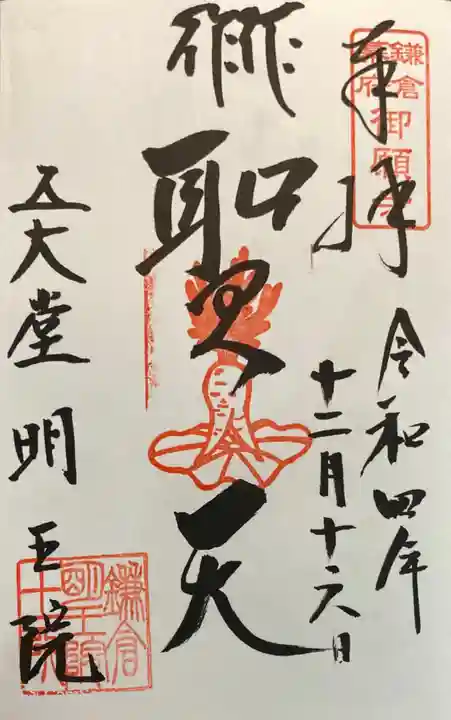 奉拝
鎌倉
幕府
御願寺
令和四年
十二月十六日
聖天
五大堂明王院
鎌倉
明王院